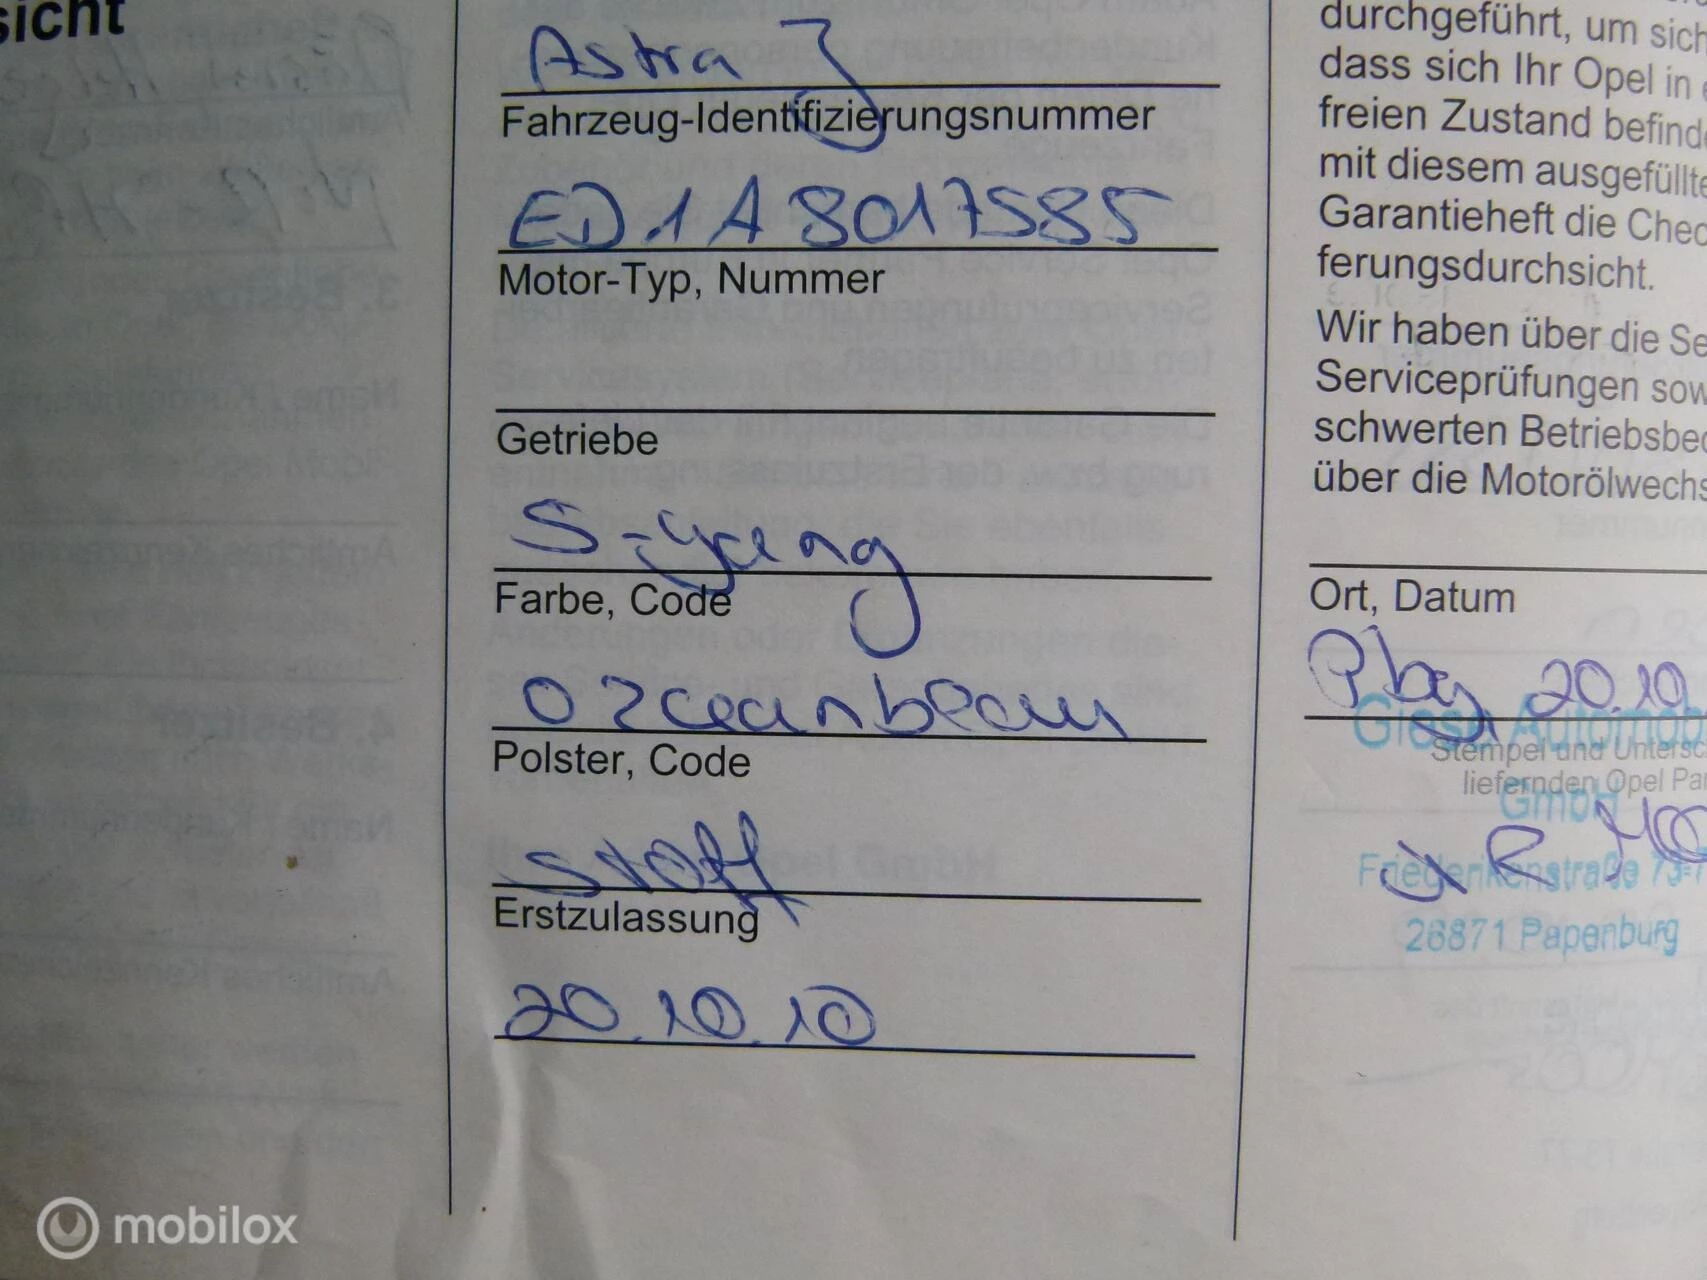 sicht
Astra J
Fahrzeug-Identifizierungsnummer
ED1A8017585
Motor-Typ, Nummer
Getriebe
5-gang
Farbe, Code
Polster, Code
Stoff
Erstzulassung
20.10.10
durchgeführt, um sich
dass sich Ihr Opel in
freien Zustand befind
mit diesem ausgefüllte
Garantieheft die Chec
ferungsdurchsicht.
Wir haben über die Se
Serviceprüfungen sow
schwerten Betriebsbed
über die Motorölwechs
Ort, Datum
Pbg 20.10
Stempel und Untersc
liefernden Opel Par
GmbH
Friederikenstraße 73-7
26871 Papenburg
3. Besitzer
Name / Kundennummer
4. Besitzer
Name / Kundennummer
mobilox